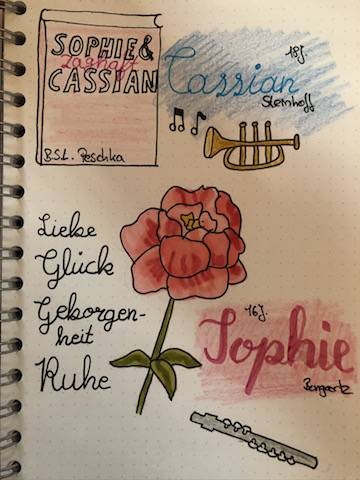 SOPHIE &
zaghaft
CASSIAN
B.S.L. Peschka
18J.
Cassian
Steinhoff
Liebe
Glück
Geborgen-
heit
Ruhe
16J.
Sophie